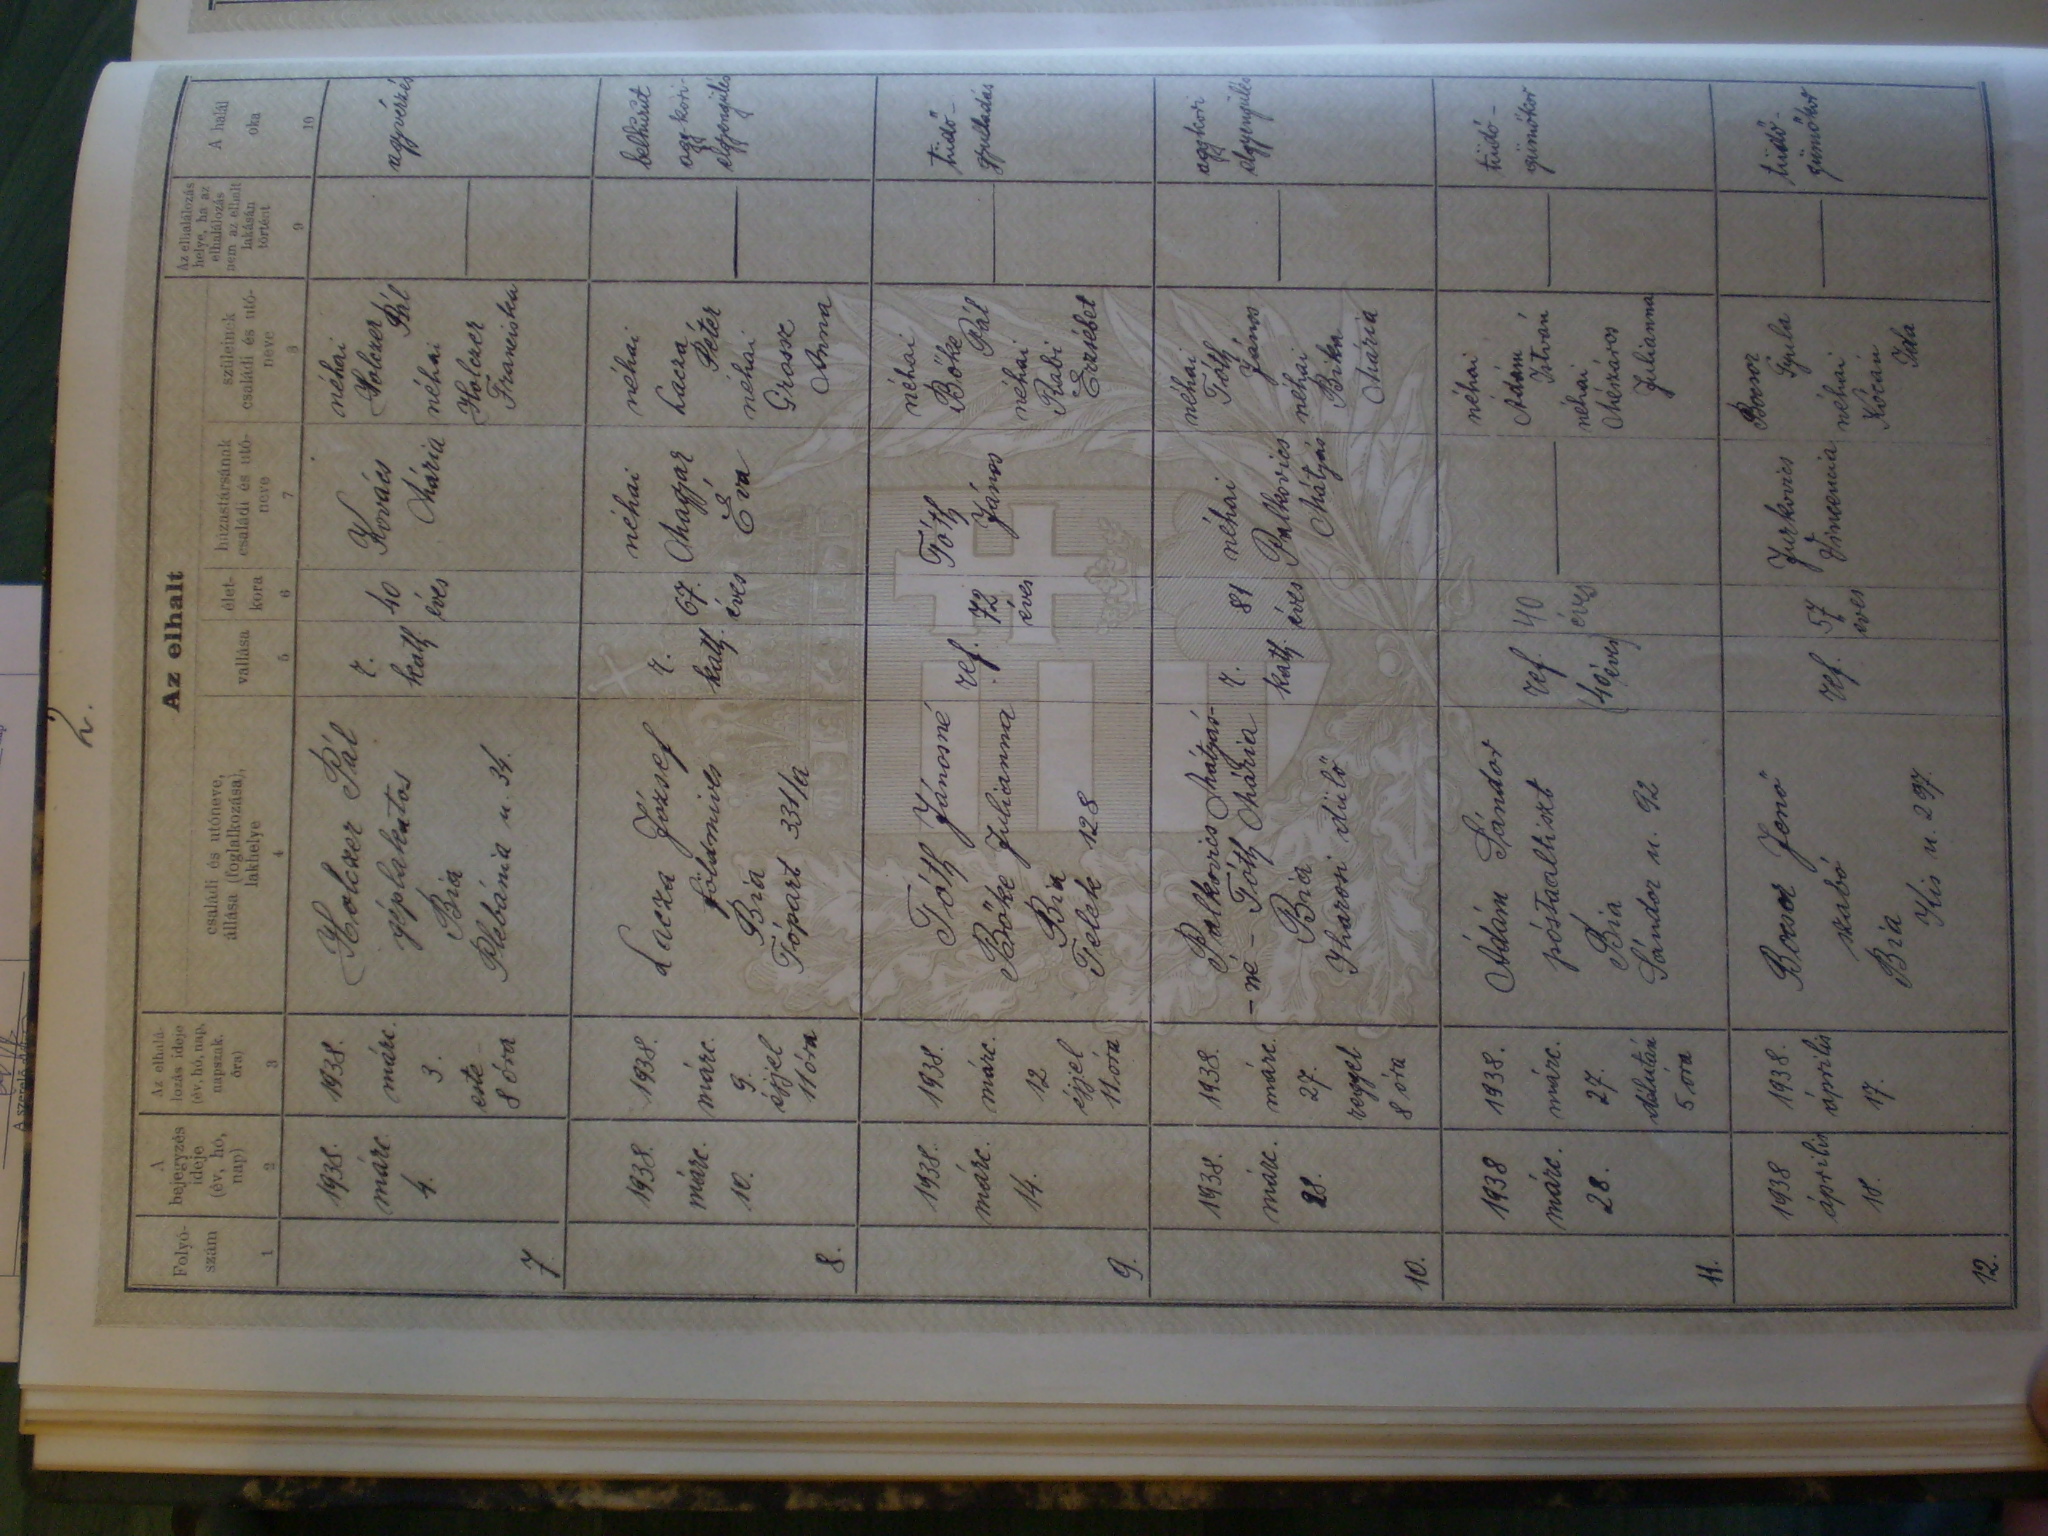 2.
Az elhalt
Folyó-
szám
A
bejegyzés
ideje
(év, hó,
nap)
Az elhalá-
lozás ideje
(év, hó, nap,
napszak,
óra)
családi és utóneve,
állása (foglalkozása),
lakhelye
vallása
élet-
kora
házastársának
családi és utó-
neve
szüleinek
családi és utó-
neve
Az elhalálozás
helye, ha az
elhalálozás
nem az elhalt
lakásán
történt
A halál
oka
1
2
3
4
5
6
7
8
9
10
7
1938.
márc.
4.
1938.
márc.
3.
este
8 óra
Holczer Pál
géplakatos
Bia
Plébánia u. 34.
r.
kath
40
éves
Kovács
Mária
néhai
Holczer
Pál
néhai
Holczer
Franciska
agyvérzés
8.
1938.
márc.
10.
1938.
márc.
9.
éjjel
11 óra
Lacza József
földmives
Bia
Tópart 331/a
r.
kath.
67.
éves
néhai
Magyar
Éva
néhai
Lacza
Péter
néhai
Grossz
Anna
bélhurut
agg-kori-
elgyengülés
9.
1938.
márc.
14.
1938.
márc.
12
éjjel
11.óra
Tóth Jánosné
Bőke Julianna
Bia
Telek 128
ref.
72
éves
Tóth
János
néhai
Bőke
Pál
néhai
Rabi
Erzsébet
tüdő-
gyulladás
10.
1938.
márc.
28.
1938.
márc.
27.
reggel
8 óra
Palkovics Mátyás-
-né- Tóth Mária
Bia
Iharosi dülő
r.
kath.
81
éves
néhai
Palkovics
Mátyás
néhai
Tóth
János
néhai
Bika
Mária
aggkori
elgyengülés
11.
1938
márc.
28.
1938
márc.
27.
délután
5 óra
Ádám Sándor
póstaaltiszt
Bia
Sándor u. 92
ref.
(40 éves)
40
éves
néhai
Ádám
István
néhai
Mészáros
Julianna
tüdő-
gümőkór
12.
1938
április
18.
1938.
április
17.
Bocsor Jenő
szabó
Bia
Kis u. 297.
ref.
57
éves
Jurkovics
Vincencia
Bocsor
Gyula
néhai
Kocán
Ida
tüdő-
gümőkór